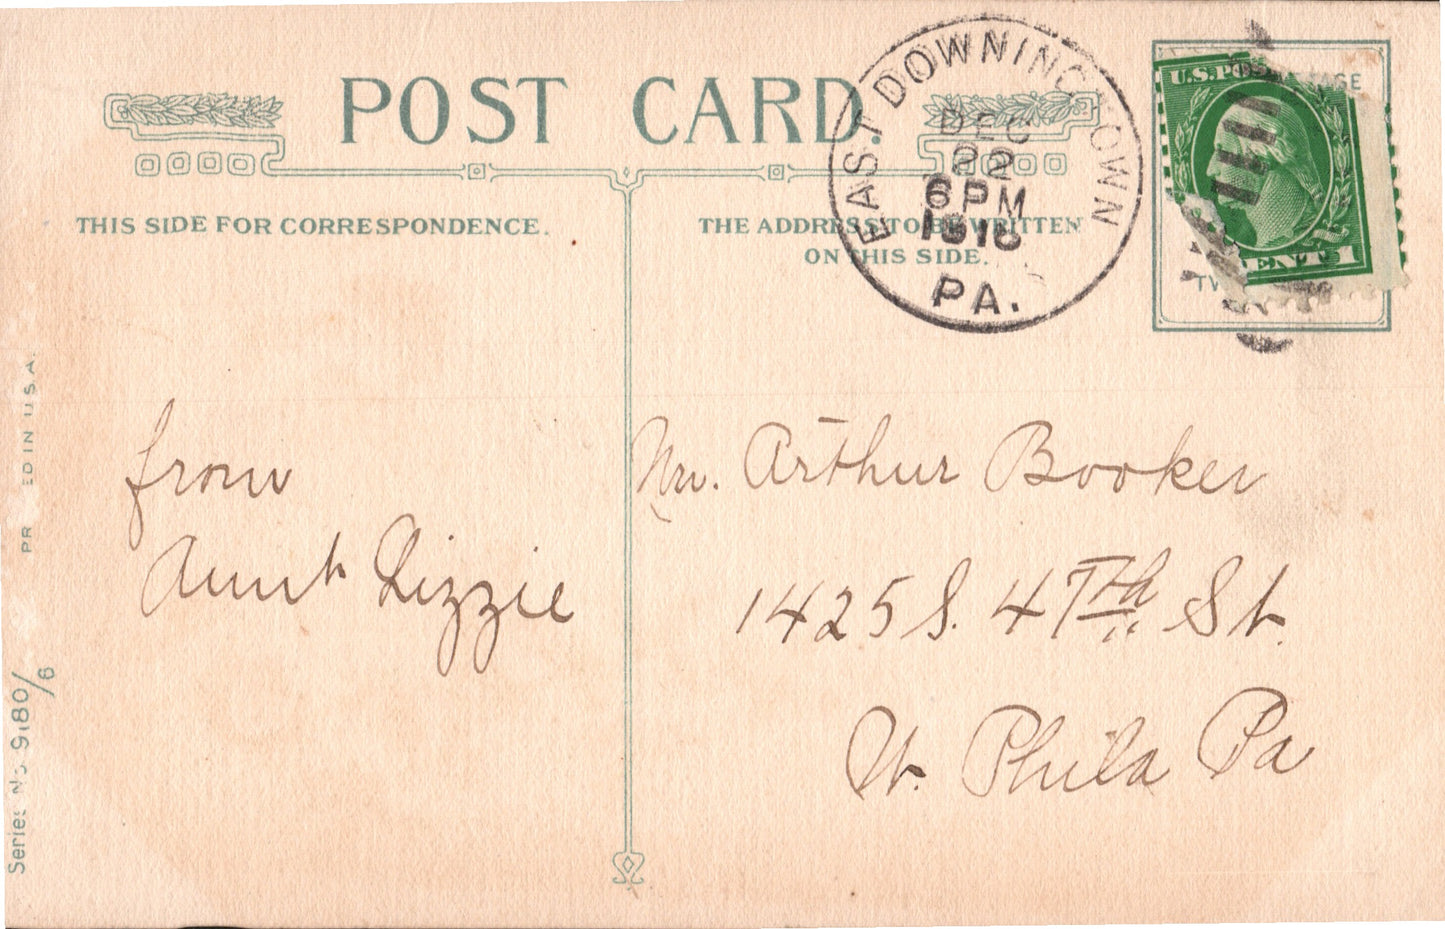 POST CARD.
EAST DOWNINGTOWN
DEC
22
6 PM
PA.
U.S. POSTAGE
THIS SIDE FOR CORRESPONDENCE.
THE ADDRESS TO BE WRITTEN
ON THIS SIDE.
from
Aunt Lizzie
Mr. Arthur Booker
1425 S. 47th St.
W. Phila Pa
PR ED IN U.S.A.
Series No 9180/6